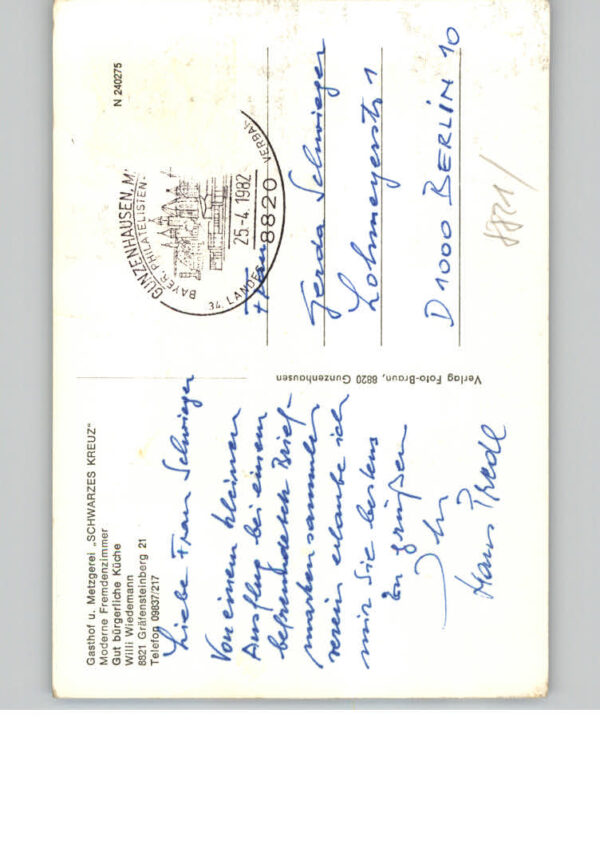 Gasthof u. Metzgerei „SCHWARZES KREUZ"
Moderne Fremdenzimmer
Gut bürgerliche Küche
Willi Wiedemann
8821 Gräfensteinberg 21
Telefon 09837/217
Liebe Frau Schwieger
Von einem kleinen
Ausflug bei einem
befreundeten Brief-
markensammler
verein erlaube ich
mir Sie bestens
zu grüßen
Ihr
Hans Predl
Verlag Foto-Braun, 8820 Gunzenhausen
N 240275
GUNZENHAUSEN, M
BAYER. PHILATELISTEN
34. LANDES VERBAN
25.-4.1982
8820
Frau
Gerda Schwieger
Lohmeyerstr 1
D 1000 BERLIN 10
8821/